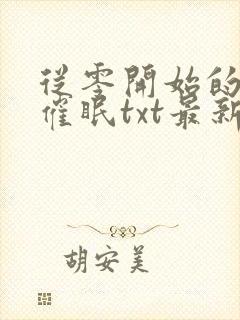 從零開始的
催眠txt最新
胡安美